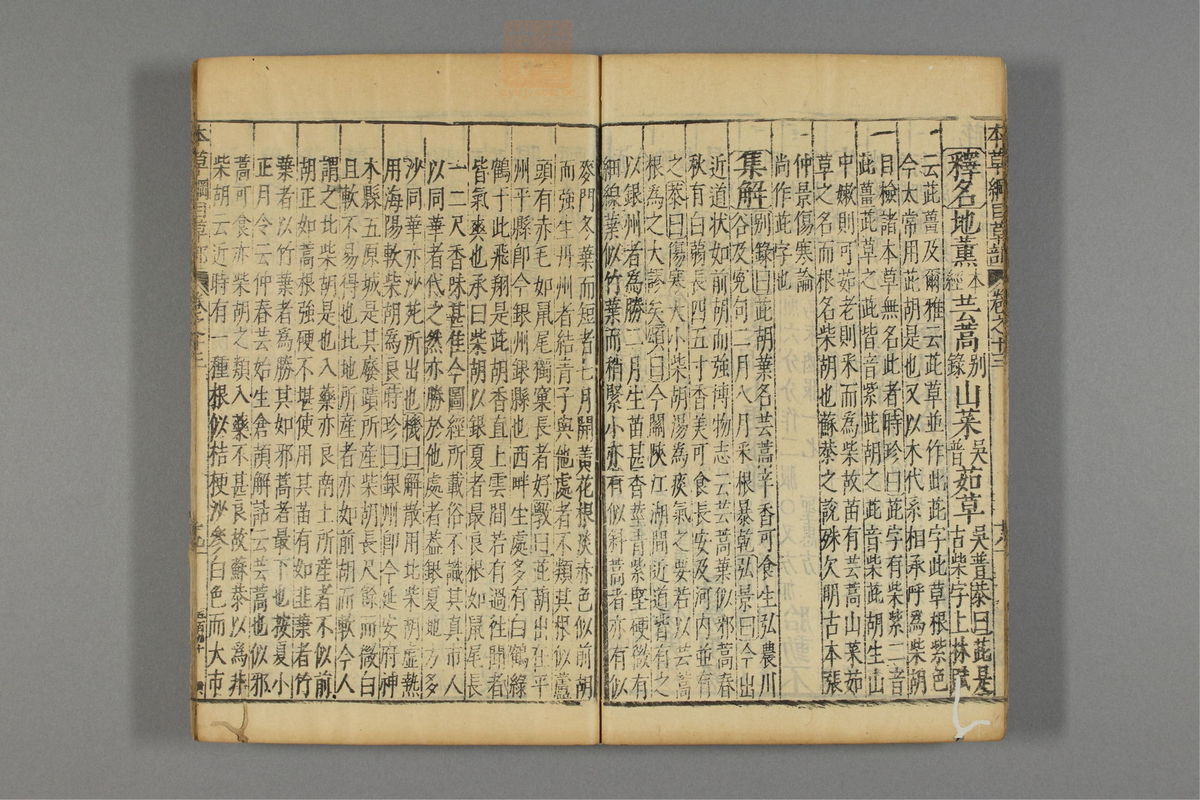 本草綱目草部 卷之十三
釋名地薰本經芸蒿別錄山菜吳普茹草吳普恭曰茈是古柴字上林賦
云茈薑及爾雅云茈草並作此茈字此草根紫色
今太常用茈胡是也又以木代系相承呼為柴胡
目檢諸本草無名此者時珍曰茈字有柴紫二音
茈薑茈草之茈皆音紫茈胡之茈音柴茈胡生山
中嫩則可茹老則釆而為柴故苗有芸蒿山菜茹
草之名而根名柴胡也蘇恭之說殊欠明古本張
仲景傷寒論
尚作茈字也
集解別錄曰茈胡葉名芸蒿辛香可食生弘農川
谷及冤句二月八月釆根暴乾弘景曰今出
近道狀如前胡而強博物志云芸蒿葉似邪蒿春
秋有白蒻長四五寸香美可食長安及河內並有
之恭曰傷寒大小柴胡湯為痰氣之要若以芸蒿
根為之大謬矣頌曰今關陝江湖間近道皆有之
以銀州者為勝二月生苗甚香莖青紫堅硬微有
細線葉似竹葉而稍緊小亦有似斜蒿者亦有似
麥門冬葉而短者七月開黃花根淡赤色似前胡
而強生丹州者結青子與他處者不類其根似蘆
頭有赤毛如鼠尾獨窠長者好斆曰茈胡出在平
州平縣即今銀州銀縣也西畔生處多有白鶴綠
鶴于此飛翔是茈胡香直上雲間若有過往聞者
皆氣爽也承曰柴胡以銀夏者最良根如鼠尾長
一二尺香味甚佳今圖經所載俗不識其真市人
以同華者代之然亦勝於他處者蓋銀夏地方多
沙同華亦沙苑所出也機曰解散用北柴胡虛熱
用海陽軟柴胡為良時珍曰銀州即今延安府神
木縣五原城是其廢蹟所產柴胡長尺餘而微白
且軟不易得也北地所產者亦如前胡而軟今人
謂之北柴胡是也入藥亦良南土所產者不似前
胡正如蒿根強硬不堪使用其苗有如韭葉者竹
葉者以竹葉者為勝其如邪蒿者最下也按夏小
正月令云仲春芸始生倉頡解詁云芸蒿也似邪
蒿可食亦柴胡之類入藥不甚良故蘇恭以為非
柴胡云近時有一種根似桔梗沙參白色而大市
本草綱目草部 卷之十三